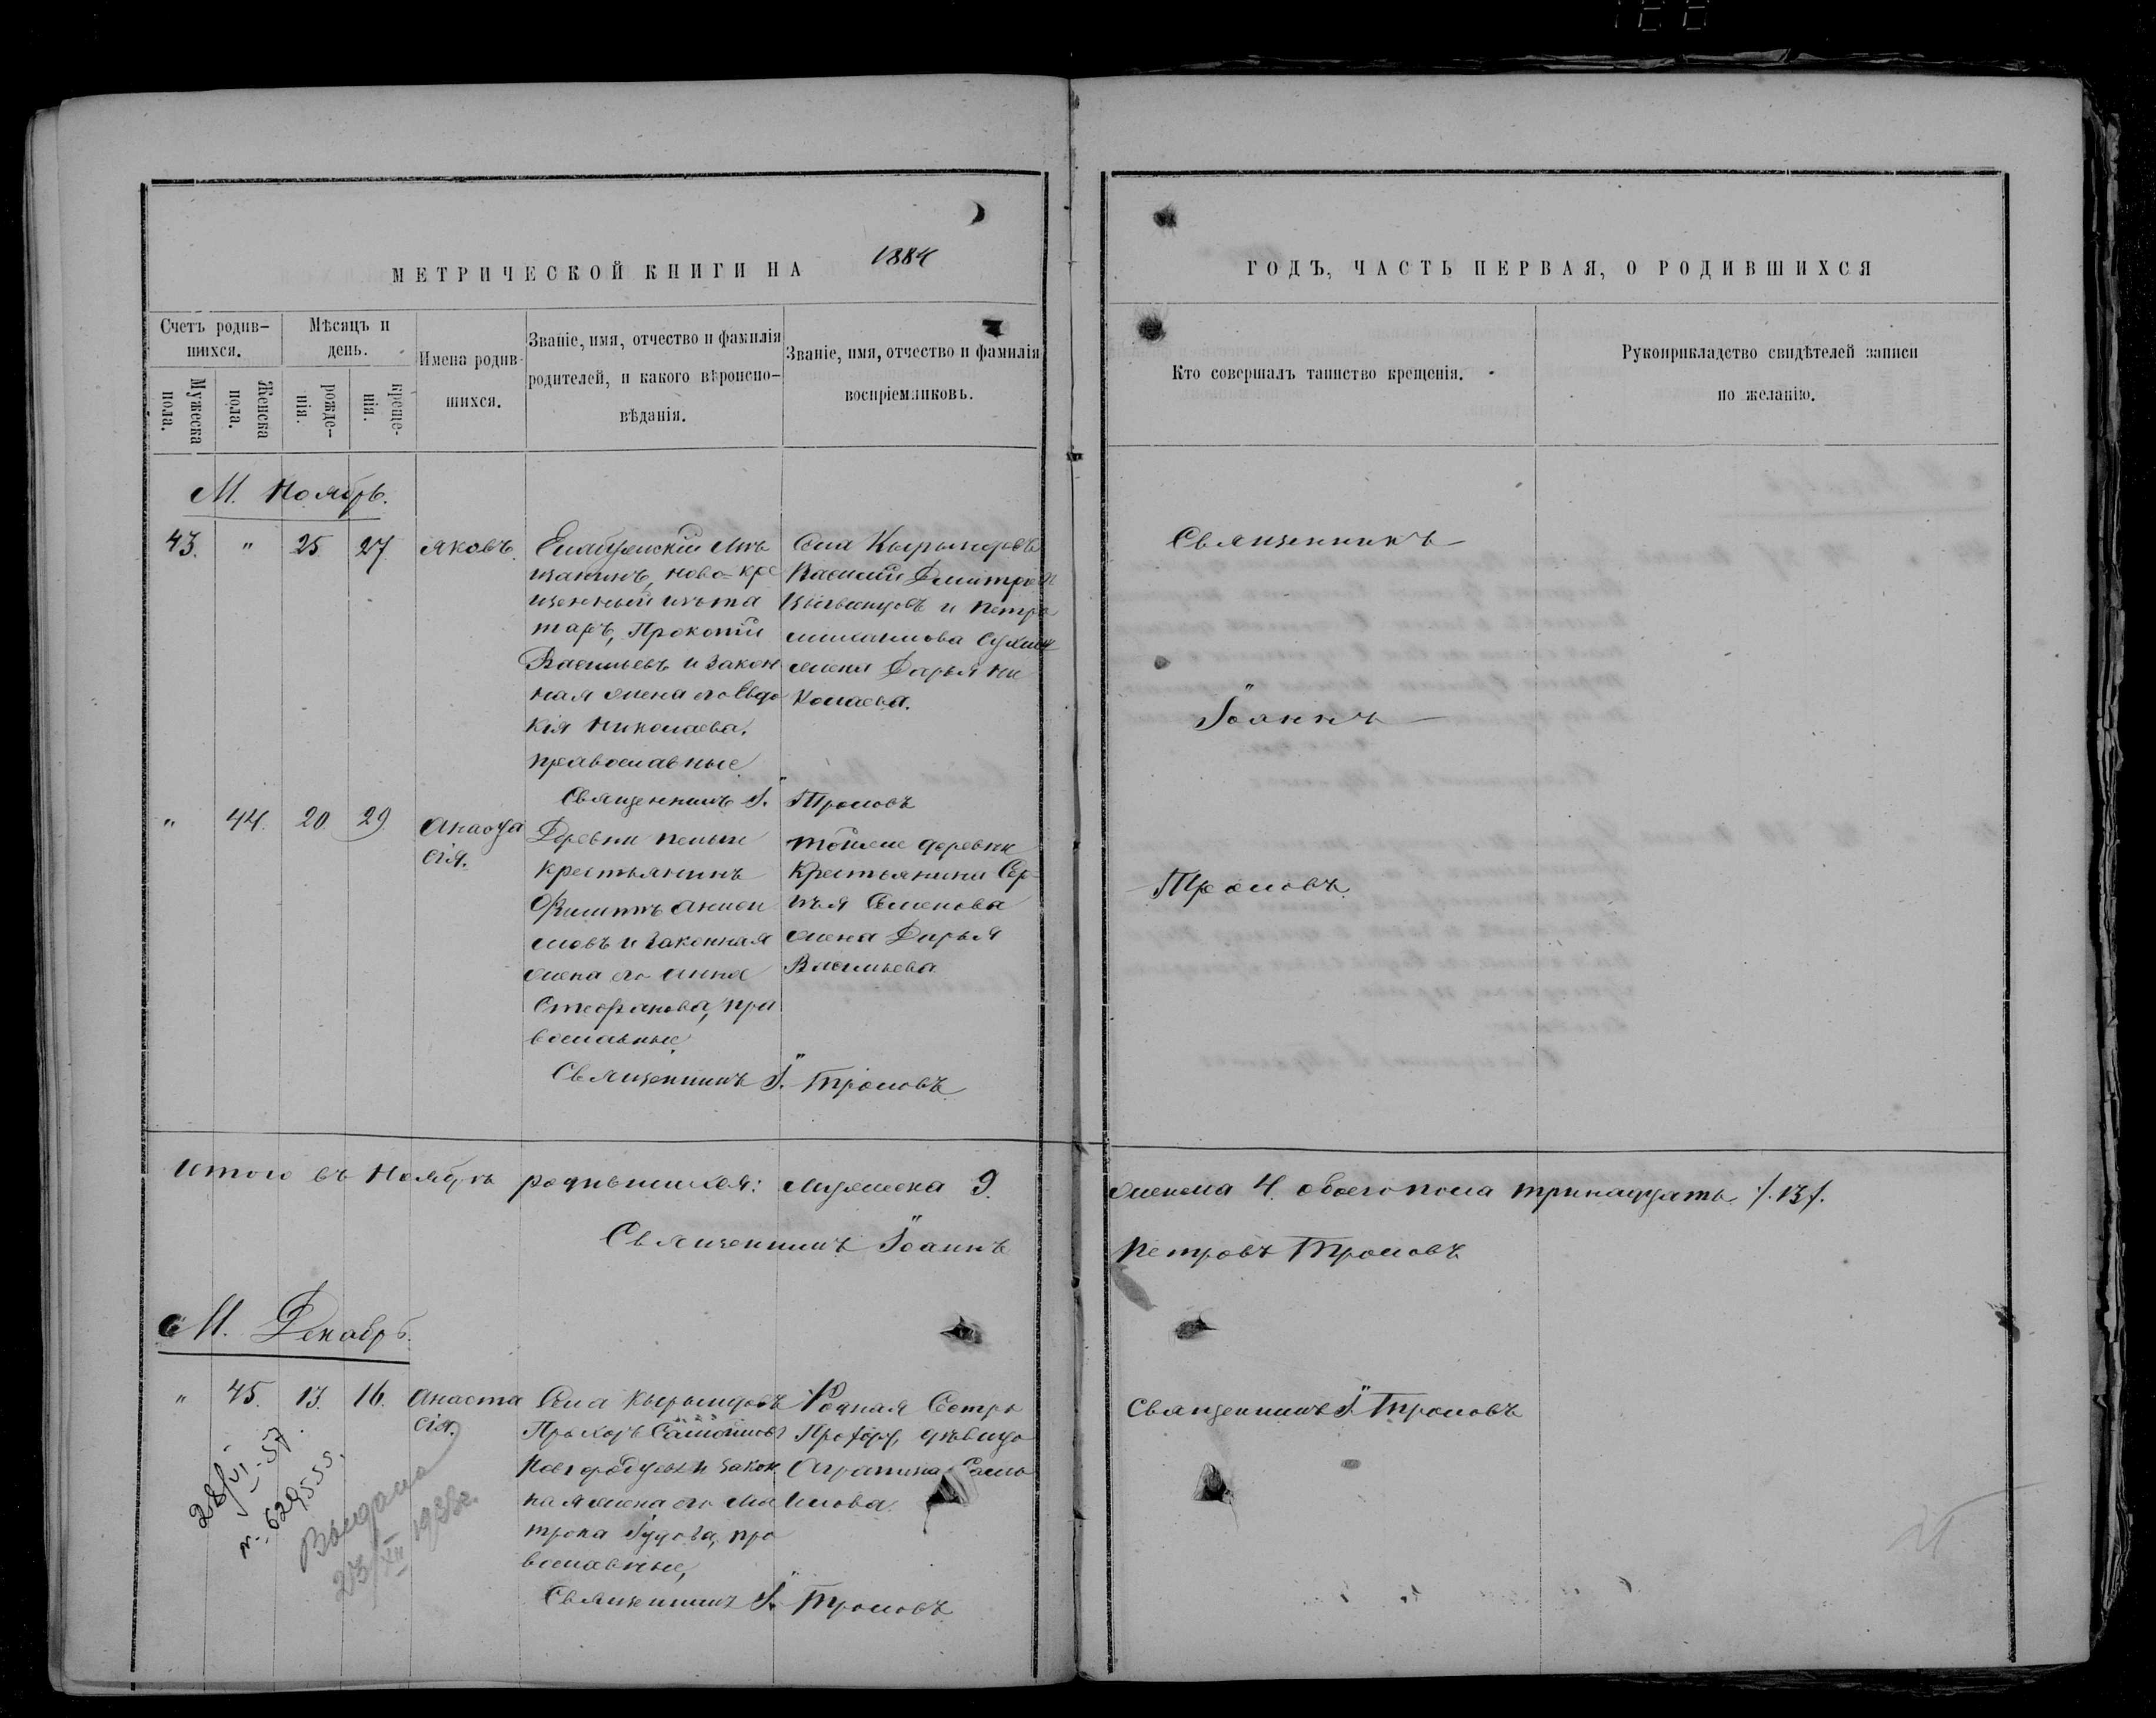 МЕТРИЧЕСКОЙ КНИГИ НА 1884
ГОДЪ, ЧАСТЬ ПЕРВАЯ, О РОДИВШИХСЯ
Счетъ родив-
шихся.
Мужеска
пола.
Женска
пола.
Мѣсяцъ и
день.
рожде-
нія.
креще-
нія.
Имена родив-
шихся.
Званіе, имя, отчество и фамилія
родителей, и какого вѣроиспо-
вѣданія.
Званіе, имя, отчество и фамилія
воспріемниковъ.
Кто совершалъ таинство крещенія.
Рукоприкладство свидѣтелей записи
по желанію.
М. Ноябрь.
43. " 25 27. Яковъ.
Елабужскій мѣ
щанинъ, ново-кре
щенный изъ та
таръ, Прокопій
Васильевъ и закон
ная жена его Евдо
кія Николаева,
православные
Села
Василій Дмитріев
и Петра
жена Дарья Ни
колаева.
Священникъ І. Троповъ
Священникъ
Іоаннъ
" 44. 20. 29.
сія.
Деревни
крестьянинъ
Филиппъ
и законная
жена его Анна
Стефанова, пра
вославные
тойже деревни
крестьянина Сер
гѣя Семенова
жена Дарья
Васильева
Священникъ І.
Итого въ Ноябрѣ родившихся: мужеска 9.
женска 4. обоего пола тринадцать /.13/.
Священникъ Іоаннъ
Петровъ
М. Декабрь.
" 45. 13. 16. Анаста
сія.
Села
Прохоръ Самойловъ
и закон
ная жена его Ма
трона Іудова, пра
вославные,
Родная сестра
Прохора, дѣвица
Агрипина Само
илова.
Священникъ І.
Священникъ І.
28/VI-57.
№ 629555.
Выдана
23/XII 1933г.